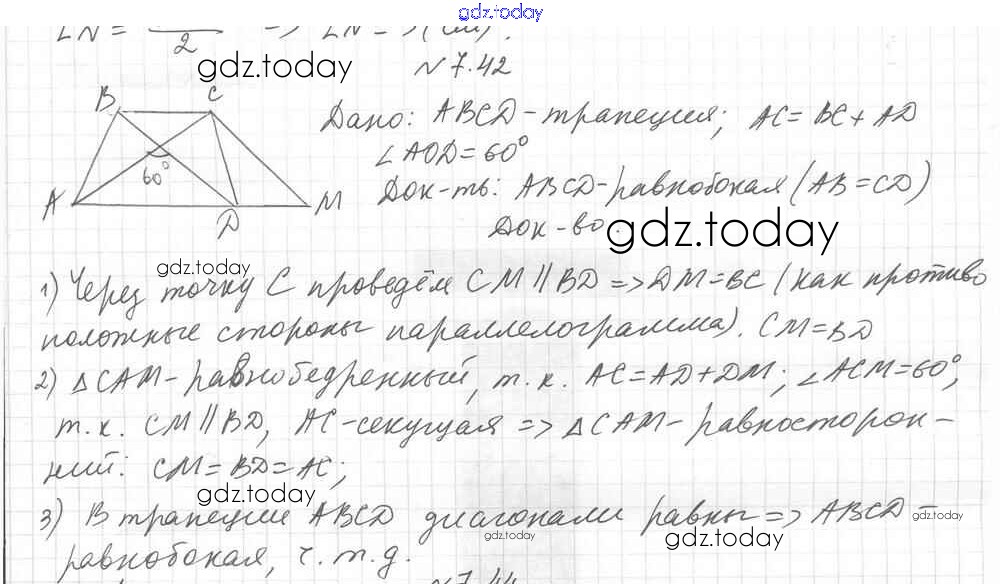 gdz.today
LN = 2 => LN =
gdz.today
№ 7.42
B C
Дано: ABCD-трапеция; AC = BC + AD
∠AOD = 60°
60°
Док-ть: ABCD-равнобокая (AB = CD)
A D M
Док-во:
gdz.today
gdz.today
1) Через точку C проведём CM || BD => DM = BC (как противо
положные стороны параллелограмма). CM = BD
2) △CAM - равнобедренный, т.к. AC = AD + DM; ∠ACM = 60°,
т.к. CM || BD, AC-секущая => △CAM - равносторон-
ний: CM = BD = AC;
gdz.today
3) В трапеции ABCD диагонали равны => ABCD -
gdz.today
равнобокая, ч.т.д.
gdz.today
gdz.today
№ 7.44